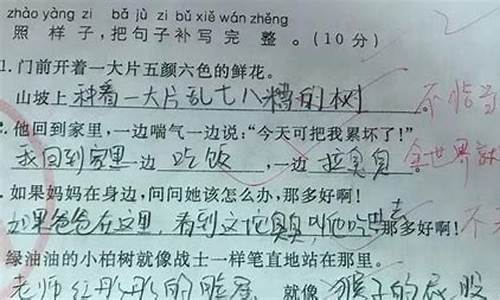 zhào yàng zi bǎ jù zi bǔ xiě wán zhěng
照 样 子，把 句 子 补 写 完 整 。（10 分）
1. 门前开着一大片五颜六色的鲜花。
山坡上种着一大片乱七八糟的树
2. 他回到家里，一边喘气一边说：“今天可把我累坏了！”
我回到家里一边 吃饭 ，一边 拉臭臭
3. 如果妈妈在身边，问问她该怎么办，那多好啊！
如果爸爸在这里，看到这坨臭臭叫他吃去 那多好啊！
绿油油的小柏树就像战士一样笔直地站在那里。
老师红彤彤的脸 就像 猴子的屁股